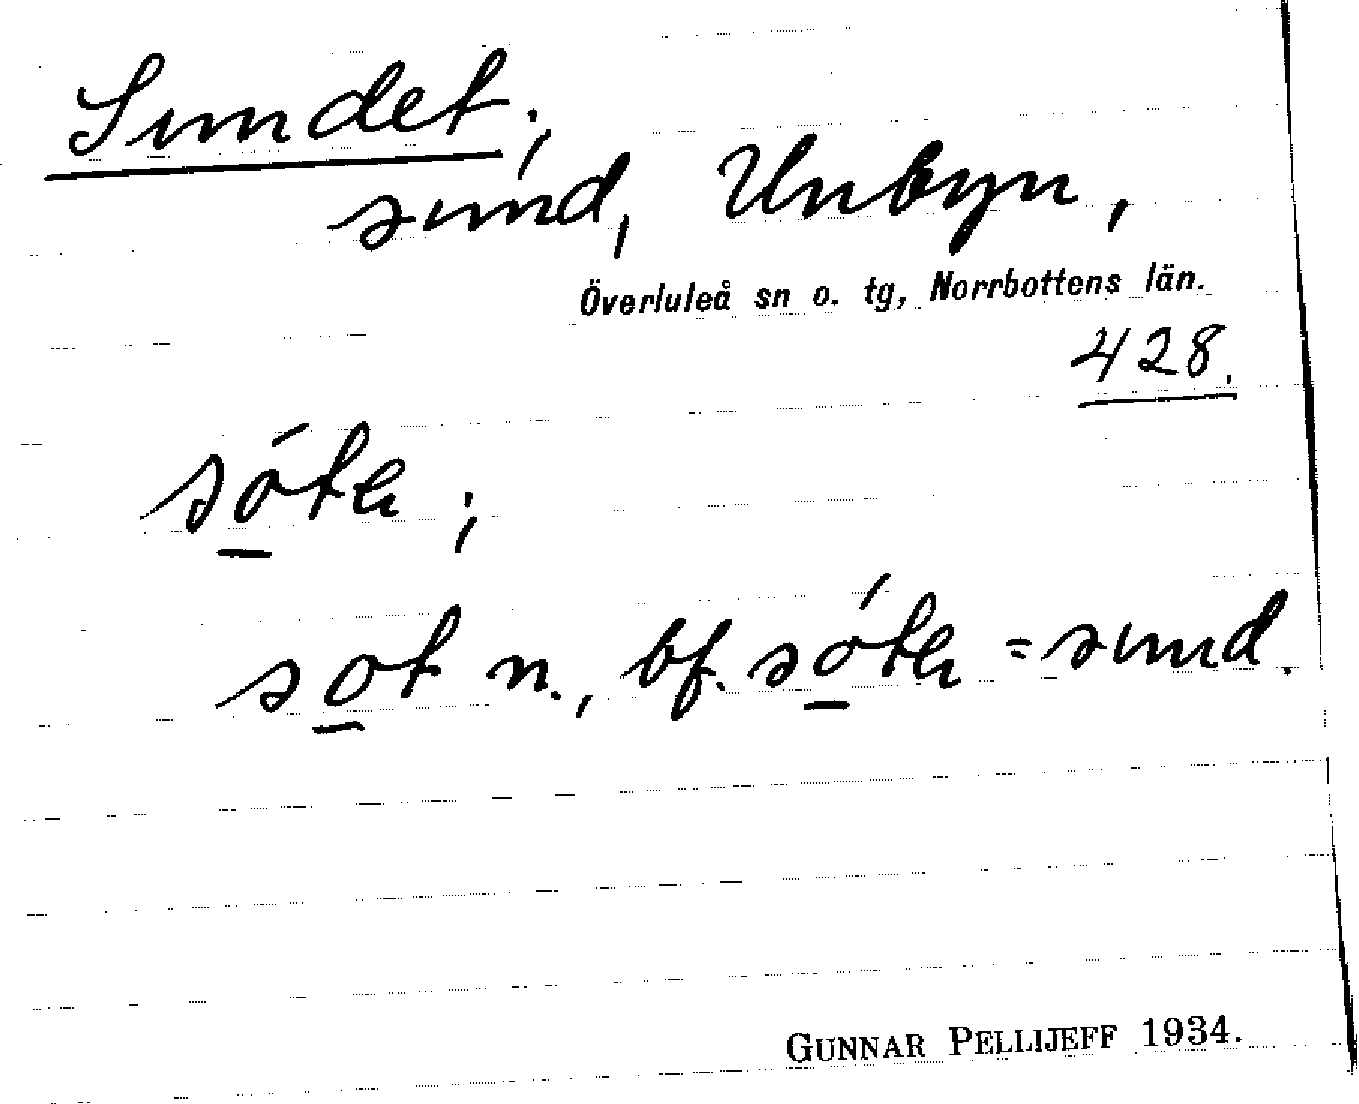 Sundet;
sund, Unbyn,
Överluleå sn o. tg, Norrbottens län.
428.
só̱te;
so̱t n., bf. só̱te = sund.
GUNNAR PELLIJEFF 1934.